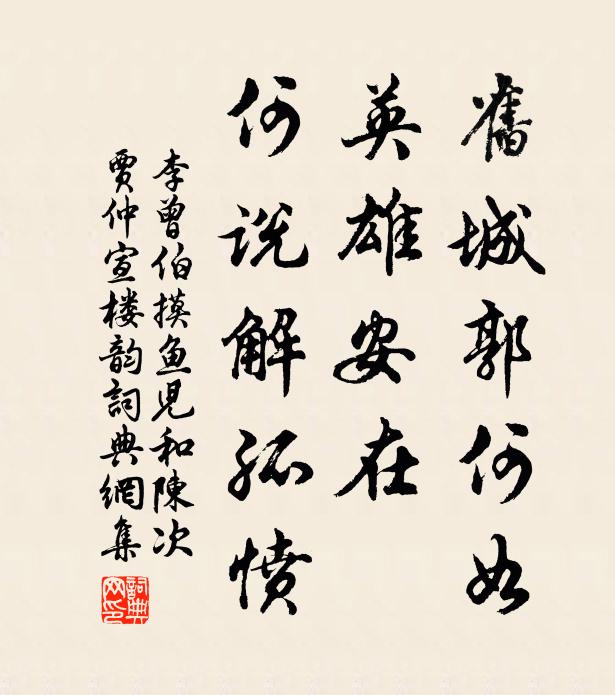 舊城郭何如
英雄安在
何说解孤憤
李曾伯摸鱼児和陳次
賈仲宣楼韵詞典網集
詞典
网印